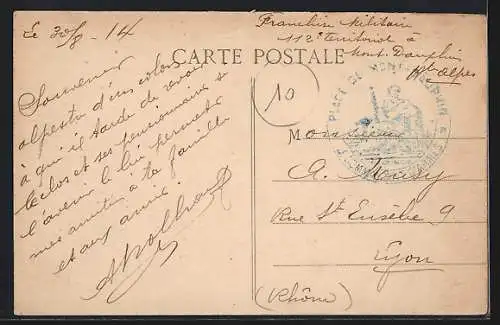 Le 30/8 - 14
Franchise Militaire
112e territorial à
Mont-Dauphin
Htes Alpes
CARTE POSTALE
PLACE DE MONT-DAUPHIN
10
Souvenir
alpestre d'un colon
à qui il tarde de revoir
le clos et ses pensionnaires &
l'avenir le lui permette
mes amitiés à ta famille
et aux amis.
Monsieur
A.
Rue St Eusèbe 9
Lyon
(Rhône)